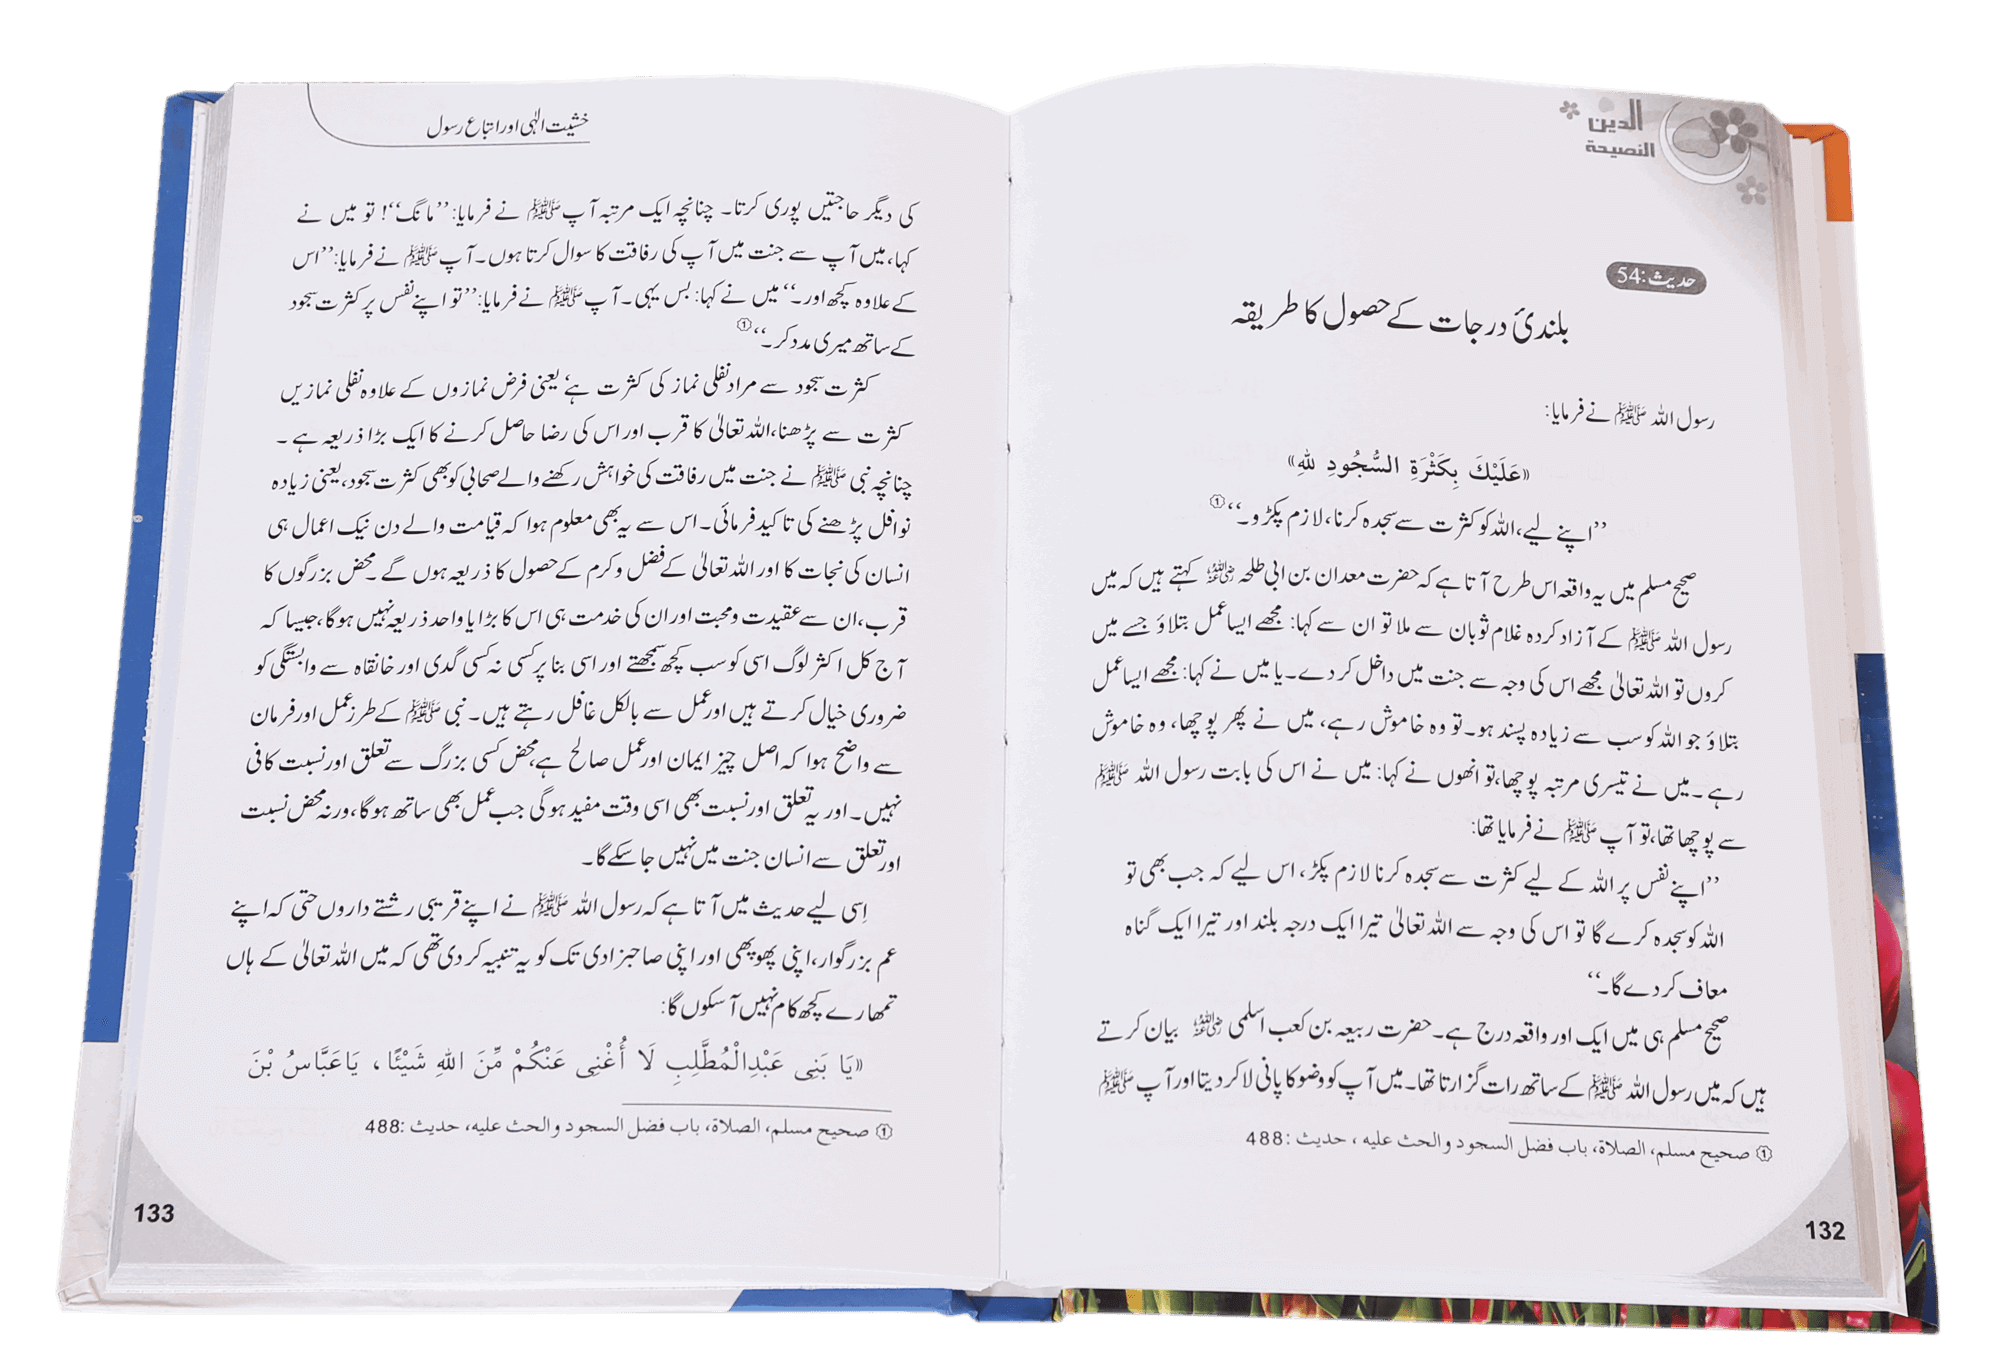 الدين
النصيحة
حدیث:54
بلندیٔ درجات کے حصول کا طریقہ
رسول اللہ ﷺ نے فرمایا:
«عَلَيْكَ بِكَثْرَةِ السُّجُودِ لِلّٰهِ»
’’اپنے لیے، اللہ کو کثرت سے سجدہ کرنا، لازم پکڑو۔‘‘①
صحیح مسلم میں یہ واقعہ اس طرح آتا ہے کہ حضرت معدان بن ابی طلحہ رضی اللہ عنہ کہتے ہیں کہ میں
رسول اللہ ﷺ کے آزاد کردہ غلام ثوبان سے ملا تو ان سے کہا: مجھے ایسا عمل بتلاؤ جسے میں
کروں تو اللہ تعالیٰ مجھے اس کی وجہ سے جنت میں داخل کر دے۔ یا میں نے کہا: مجھے ایسا عمل
بتلاؤ جو اللہ کو سب سے زیادہ پسند ہو۔ تو وہ خاموش رہے، میں نے پھر پوچھا، وہ خاموش
رہے۔ میں نے تیسری مرتبہ پوچھا، تو انھوں نے کہا: میں نے اس کی بابت رسول اللہ ﷺ
سے پوچھا تھا، تو آپ ﷺ نے فرمایا تھا:
’’اپنے نفس پر اللہ کے لیے کثرت سے سجدہ کرنا لازم پکڑ، اس لیے کہ جب بھی تو
اللہ کو سجدہ کرے گا تو اس کی وجہ سے اللہ تعالیٰ تیرا ایک درجہ بلند اور تیرا ایک گناہ
معاف کر دے گا۔‘‘
صحیح مسلم ہی میں ایک اور واقعہ درج ہے۔ حضرت ربیعہ بن کعب اسلمی رضی اللہ عنہ بیان کرتے
ہیں کہ میں رسول اللہ ﷺ کے ساتھ رات گزارتا تھا۔ میں آپ کو وضو کا پانی لا کر دیتا اور آپ ﷺ
① صحيح مسلم، الصلاة، باب فضل السجود والحث عليه، حديث:488
132
خشیت الٰہی اور اتباع رسول
کی دیگر حاجتیں پوری کرتا۔ چنانچہ ایک مرتبہ آپ ﷺ نے فرمایا: ’’مانگ‘‘! تو میں نے
کہا، میں آپ سے جنت میں آپ کی رفاقت کا سوال کرتا ہوں۔ آپ ﷺ نے فرمایا: ’’اس
کے علاوہ کچھ اور۔‘‘ میں نے کہا: بس یہی۔ آپ ﷺ نے فرمایا: ’’تو اپنے نفس پر کثرت سجود
کے ساتھ میری مدد کر۔‘‘①
کثرت سجود سے مراد نفلی نماز کی کثرت ہے، یعنی فرض نمازوں کے علاوہ نفلی نمازیں
کثرت سے پڑھنا، اللہ تعالیٰ کا قرب اور اس کی رضا حاصل کرنے کا ایک بڑا ذریعہ ہے۔
چنانچہ نبی ﷺ نے جنت میں رفاقت کی خواہش رکھنے والے صحابی کو بھی کثرت سجود، یعنی زیادہ
نوافل پڑھنے کی تاکید فرمائی۔ اس سے یہ بھی معلوم ہوا کہ قیامت والے دن نیک اعمال ہی
انسان کی نجات کا اور اللہ تعالیٰ کے فضل و کرم کے حصول کا ذریعہ ہوں گے۔ محض بزرگوں کا
قرب، ان سے عقیدت و محبت اور ان کی خدمت ہی اس کا بڑا یا واحد ذریعہ نہیں ہوگا، جیسا کہ
آج کل اکثر لوگ اسی کو سب کچھ سمجھتے اور اسی بنا پر کسی نہ کسی گدی اور خانقاہ سے وابستگی کو
ضروری خیال کرتے ہیں اور عمل سے بالکل غافل رہتے ہیں۔ نبی ﷺ کے طرز عمل اور فرمان
سے واضح ہوا کہ اصل چیز ایمان اور عمل صالح ہے، محض کسی بزرگ سے تعلق اور نسبت کافی
نہیں۔ اور یہ تعلق اور نسبت بھی اسی وقت مفید ہوگی جب عمل بھی ساتھ ہوگا، ورنہ محض نسبت
اور تعلق سے انسان جنت میں نہیں جا سکے گا۔
اِسی لیے حدیث میں آتا ہے کہ رسول اللہ ﷺ نے اپنے قریبی رشتے داروں حتی کہ اپنے
عم بزرگوار، اپنی پھوپھی اور اپنی صاحبزادی تک کو یہ تنبیہ کر دی تھی کہ میں اللہ تعالیٰ کے ہاں
تمھارے کچھ کام نہیں آ سکوں گا:
«يَا بَنِي عَبْدِالْمُطَّلِبِ لَا أُغْنِي عَنْكُمْ مِّنَ اللّٰهِ شَيْئًا، يَاعَبَّاسُ بْنَ
① صحيح مسلم، الصلاة، باب فضل السجود والحث عليه، حديث:488
133